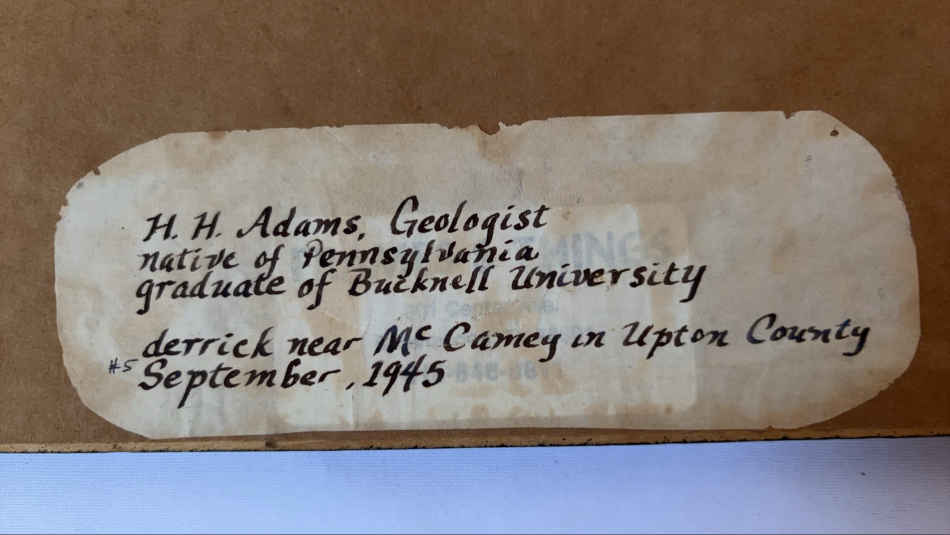 H. H. Adams, Geologist
native of Pennsylvania
graduate of Bucknell University
derrick near Mc Camey in Upton County
#5
September, 1945